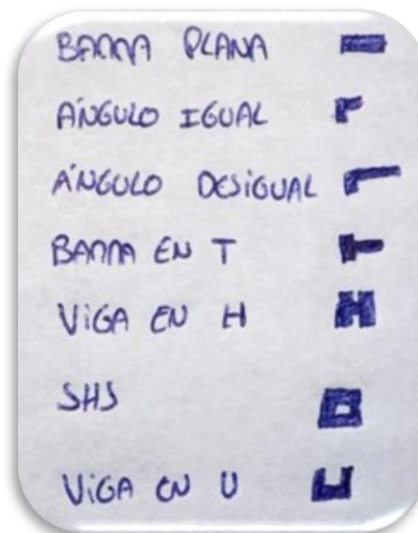 BARRA PLANA
ÁNGULO IGUAL
ÁNGULO DESIGUAL
BARRA EN T
VIGA EN H
SHS
VIGA EN U